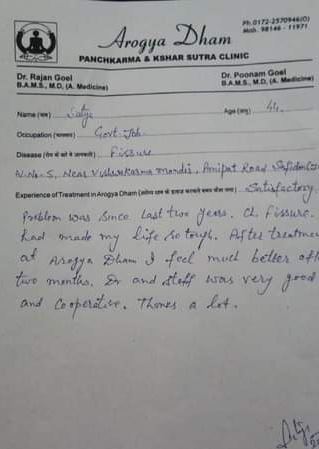 Ph.0172-2570946(O)
Mob. 98146 - 11971
Arogya Dham
PANCHKARMA & KSHAR SUTRA CLINIC
Dr. Rajan Goel
B.A.M.S., M.D, (A. Medicine)
Dr. Poonam Goel
B.A.M.S., M.D. (A. Medicine)
Name (नाम) Satya Age (आयु) 44.
Occupation (व्यवसाय) Govt. Job
Disease Fissure
Near Vishwakarma Mandir, Panipat Road Safidon
Experience of Treatment in Arogya Dham Satisfactory
Problem was since last two years. Ch. Fissure.
had made my life so tough. After treatment
at Arogya Dham I feel much better after
two months. Dr and staff was very good
and Cooperative. Thanks a lot.